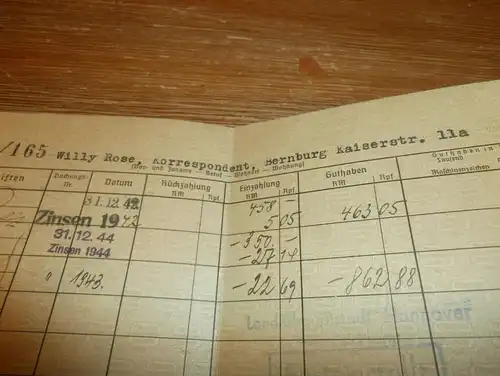 /165 Willy Rose, Korrespondent, Bernburg Kaiserstr. 11a
(Vor- und Zuname — Beruf — Wohnort — Wohnung)
Buchungs- Nr. Datum Rückzahlung RM Rpf. Einzahlung RM Rpf. Guthaben RM Rpf. Guthaben in
Tausend
31.12.42 458 –
Zinsen 1942 5 05 463 05
31.12.44 – 350 –
Zinsen 1944 – 27 14
" 1943. – 22 69 – 862 88
Hannover